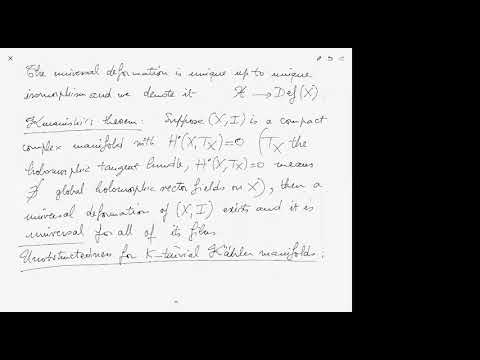 The universal deformation is unique up to unique
isomorphism and we denote it 𝒳 → Def(X).
Kuranishi's theorem: Suppose (X, I) is a compact
complex manifold with H⁰(X, T_X) = 0 (T_X the
holomorphic tangent bundle, H⁰(X, T_X) = 0 means
∄ global holomorphic vector fields on X), then a
universal deformation of (X, I) exists and it is
universal for all of its fibers
Unobstructedness for K-trivial Kähler manifolds: